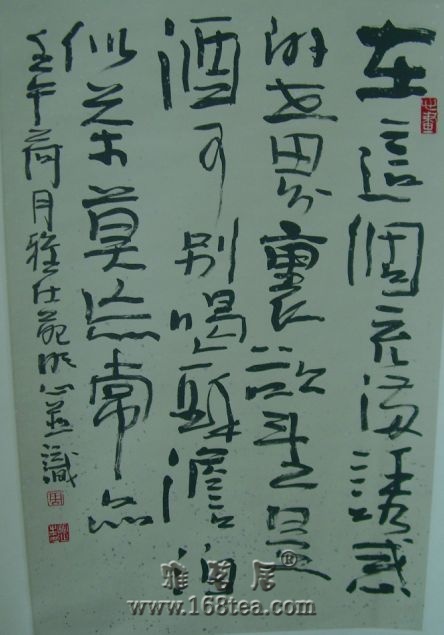 在這個充滿誘惑
的世界裏欲望是
酒可別喝醉澹泊
似茶莫忘常品
壬午荷月雅仕苑心並識
雅茗居®
www.168tea.com